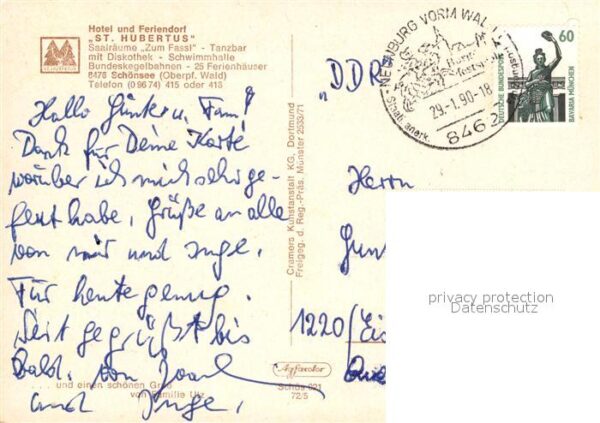 Hotel und Feriendorf
„ST. HUBERTUS"
Saalräume „Zum Fassl" - Tanzbar
mit Diskothek - Schwimmhalle
Bundeskegelbahnen - 25 Ferienhäuser
8476 Schönsee (Oberpf. Wald)
Telefon (0 96 74) 415 oder 413
ST. HUBERTUS
Hallo Günter u. Fam!
Dank für Deine Karte
worüber ich mich sehr ge-
freut habe, Grüße an alle
von mir und Inge.
Für heute genug.
Seit gegrüßt bis
bald. von
und Inge.
... und einen schönen Gruß
von Familie Utz
Cramers Kunstanstalt KG, Dortmund
Freigeg. d. Reg.-Präs. Münster 2533/71
Agfacolor
Schös 921
72/5
NEUNBURG VORM WALD
29.-1.90-18
846
Staatl. anerk.
60
DEUTSCHE BUNDESPOST
BAVARIA MÜNCHEN
„DDR
Herrn
Gün
1220/Eis
privacy protection
Datenschutz